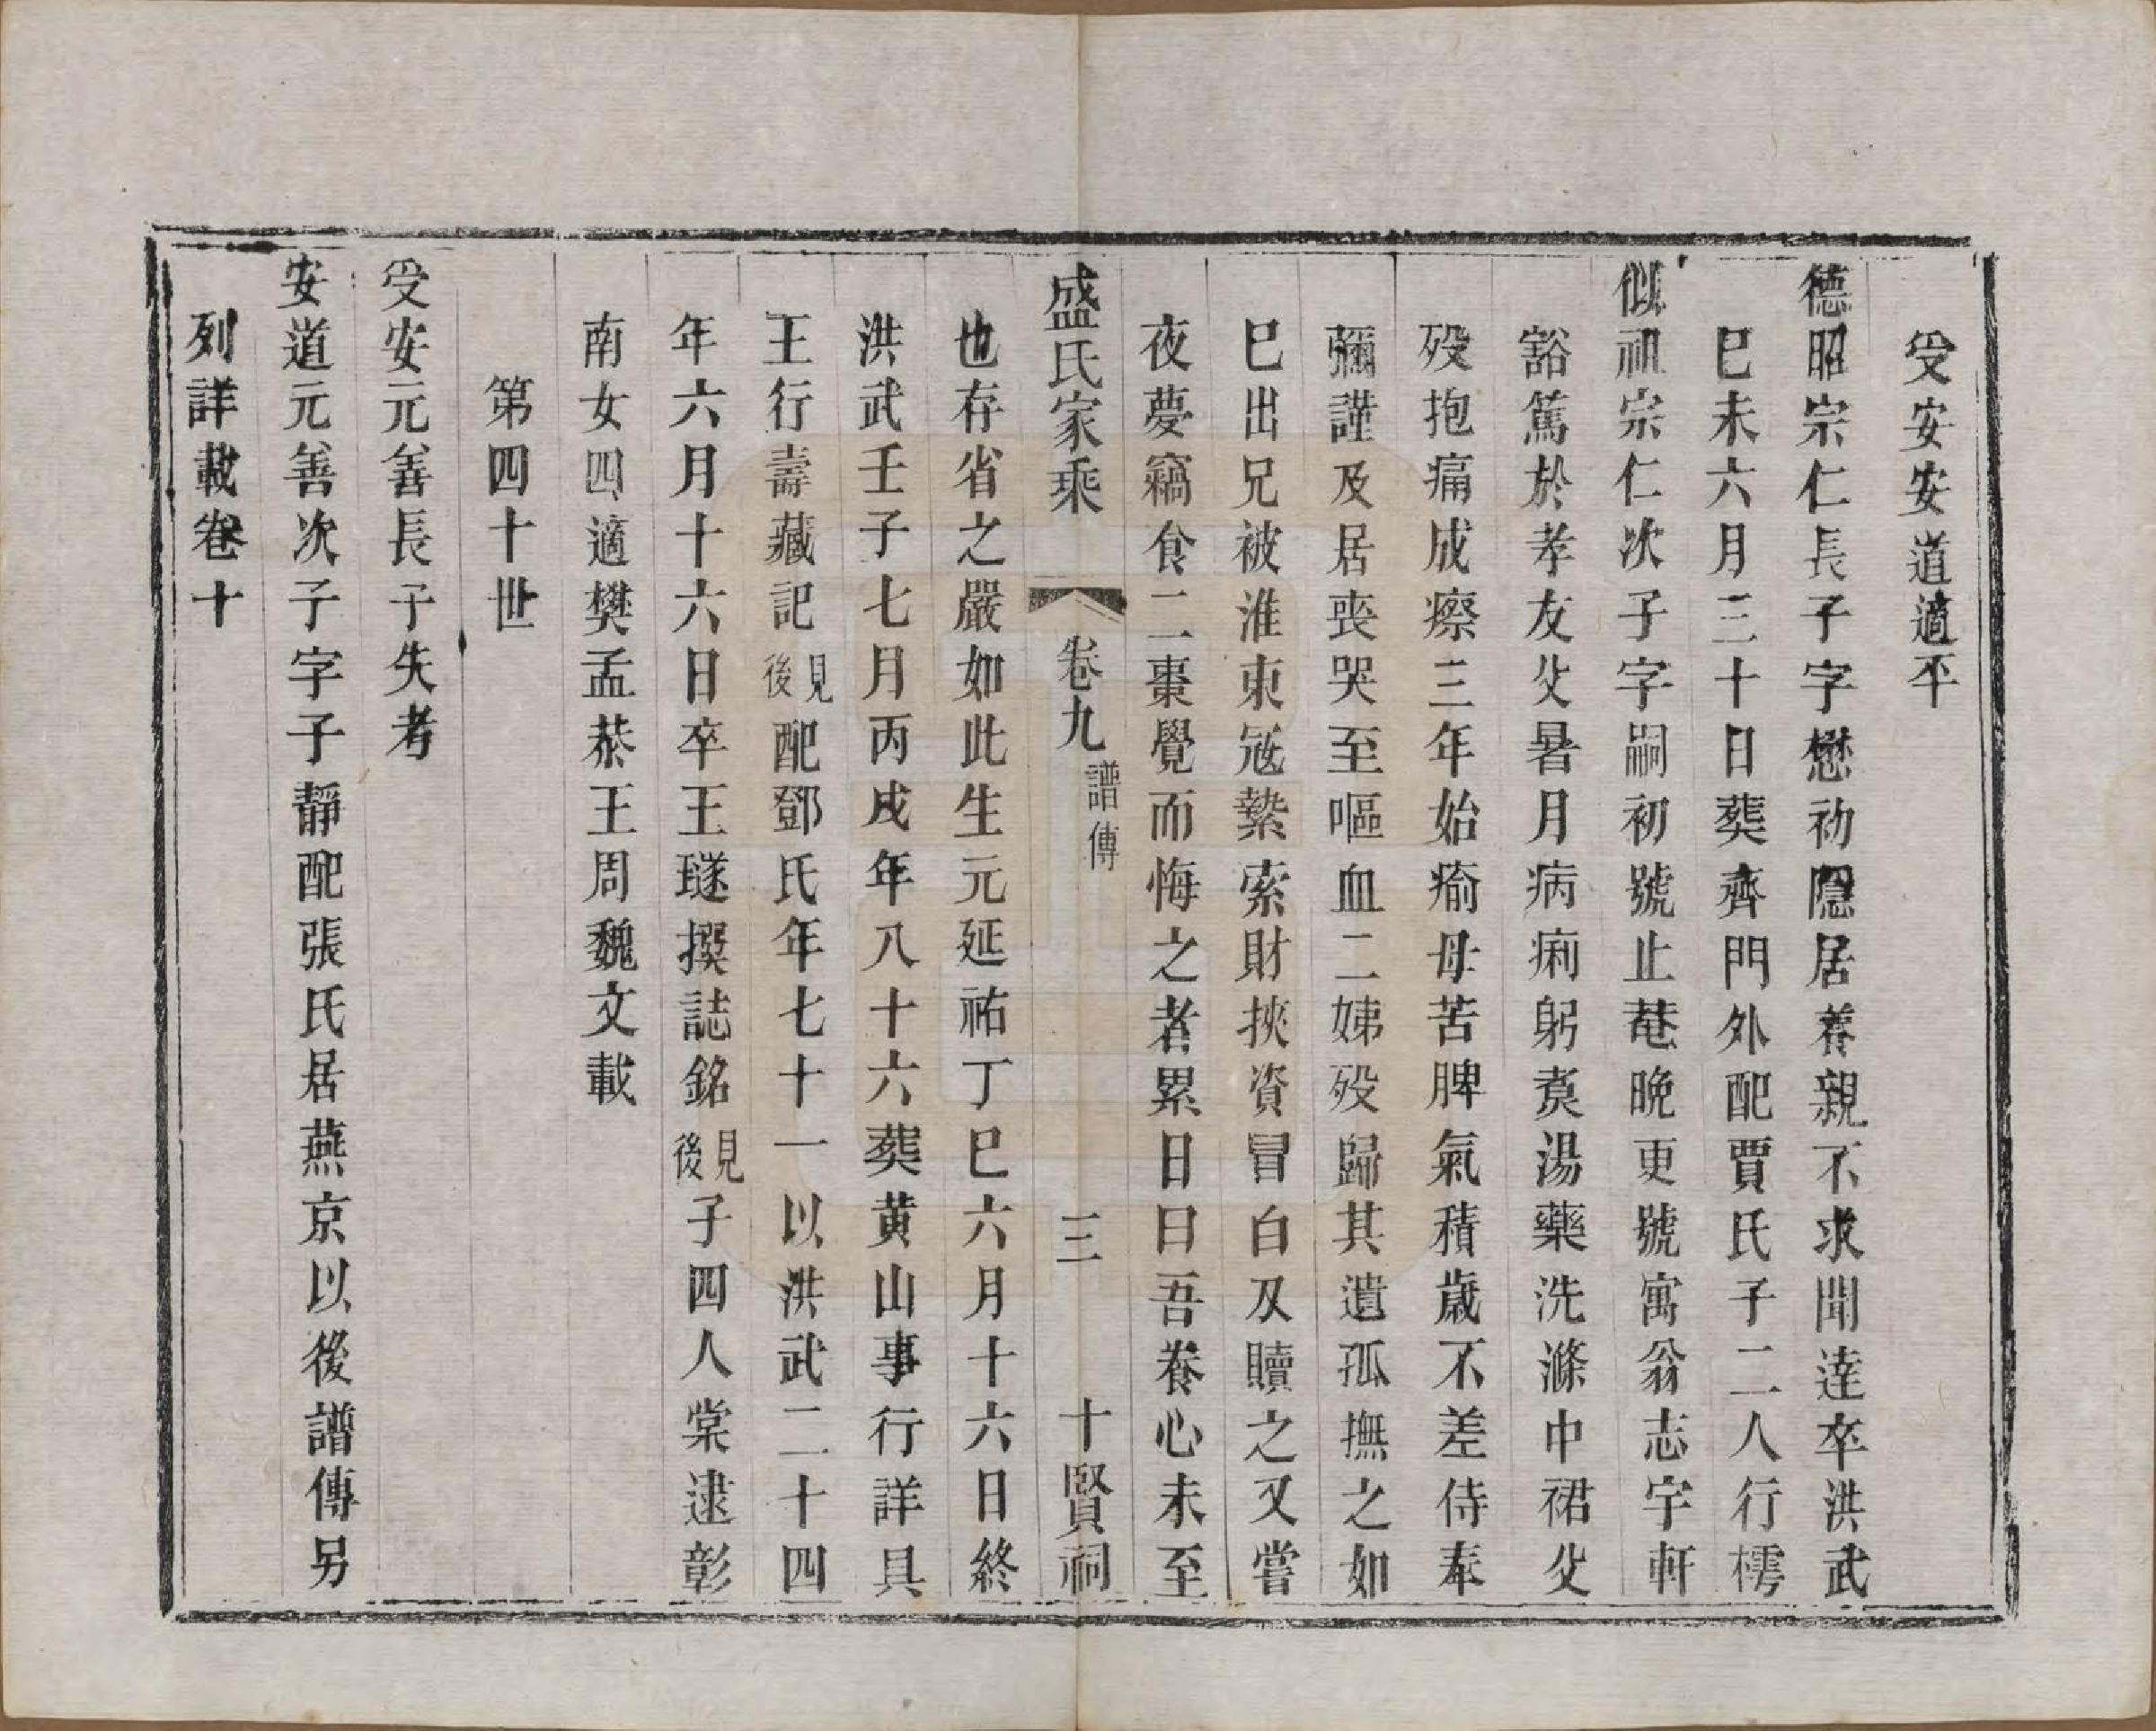 受安安道適平
德昭宗仁長子字懋初隱居養親不求聞達卒洪武
巳未六月三十日葬齊門外配賈氏子二人行樗
似祖宗仁次子字嗣初號止菴晚更號寓翁志宇軒
豁篤於孝友父暑月病痢躬煑湯藥洗滌中裙父
歿抱痛成瘵三年始瘉母苦脾氣積歲不差侍奉
彌謹及居喪哭至嘔血二娣歿歸其遺孤撫之如
巳出兄被淮東冦縶索財挾資冒白刃贖之又嘗
夜夢竊食二棗覺而悔之者累日曰吾養心未至
盛氏家乘 卷九 譜傳 三 十賢祠
也存省之嚴如此生元延祐丁巳六月十六日終
洪武壬子七月丙戌年八十六葬黄山事行詳具
王行壽藏記見後配鄧氏年七十一以洪武二十四
年六月十六日卒王璲撰誌銘見後子四人棠逮彰
南女四適樊孟恭王周魏文載
第四十世
受安元善長子失考
安道元善次子字子靜配張氏居燕京以後譜傳另
列詳載卷十